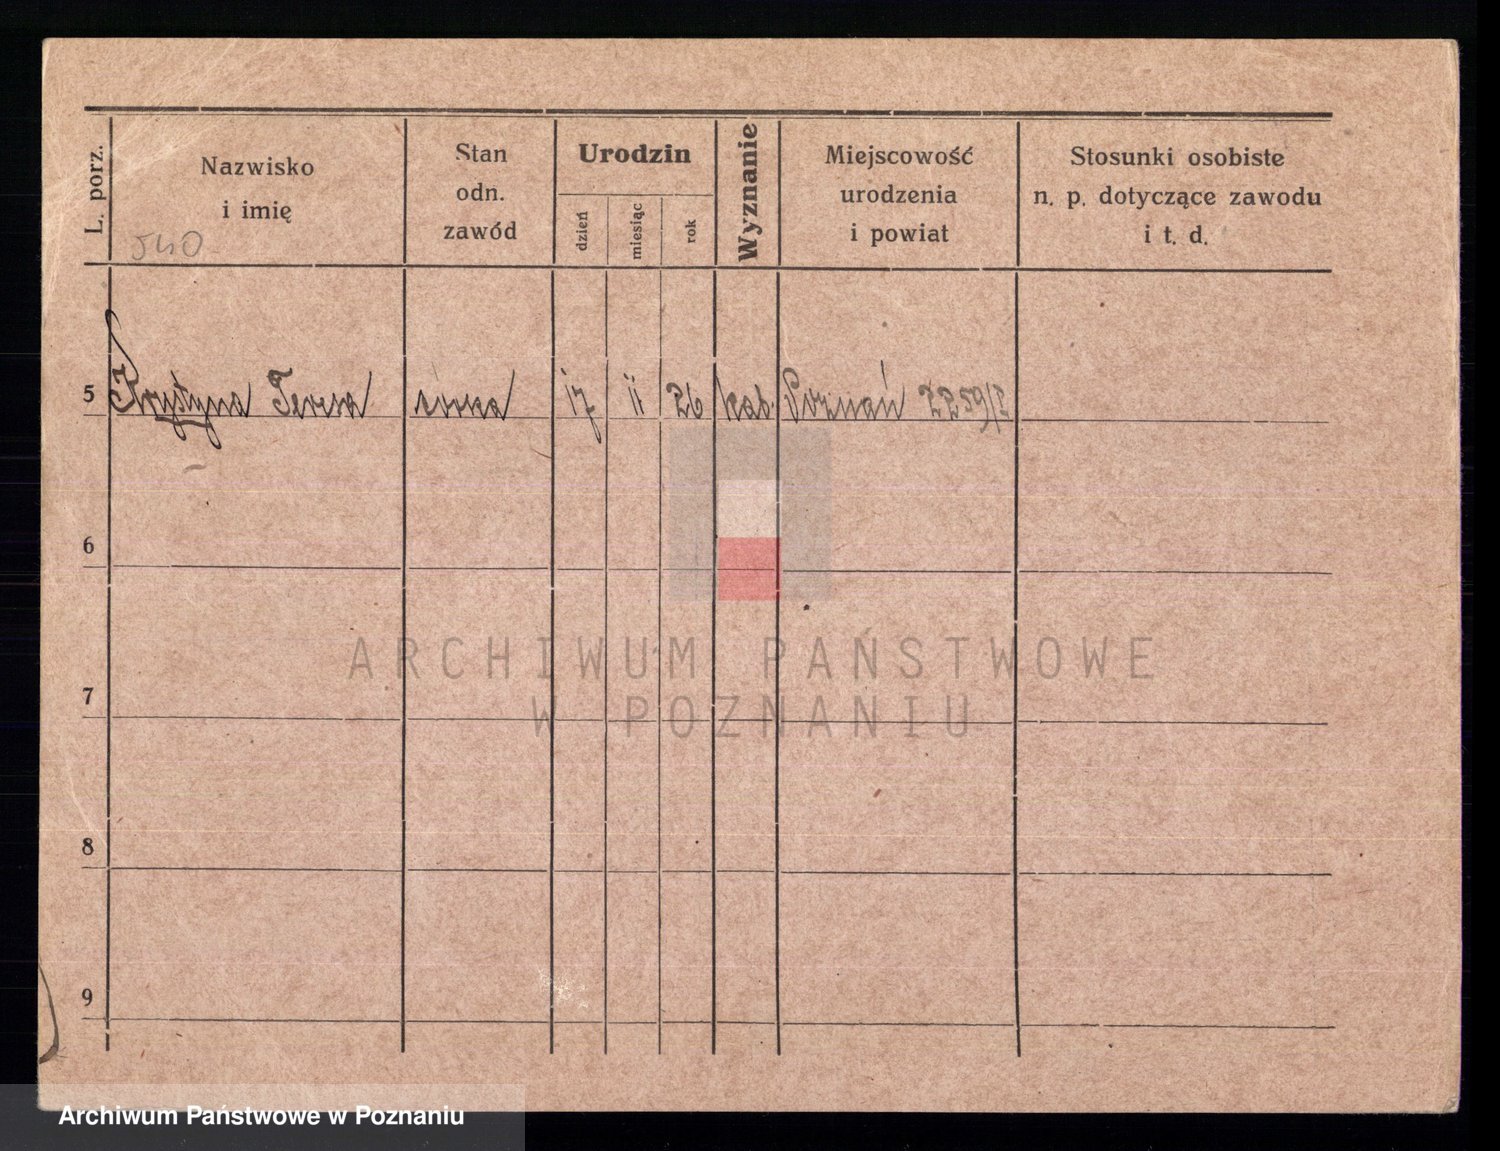 L. porz.
Nazwisko
i imię
540
Stan
odn.
zawód
Urodzin
dzień
miesiąc
rok
Wyznanie
Miejscowość
urodzenia
i powiat
Stosunki osobiste
n. p. dotyczące zawodu
i t. d.
5 Krystyna Teresa córka 17 11 26 kat. Poznań
6
7
8
9
ARCHIWUM PAŃSTWOWE
W POZNANIU
Archiwum Państwowe w Poznaniu